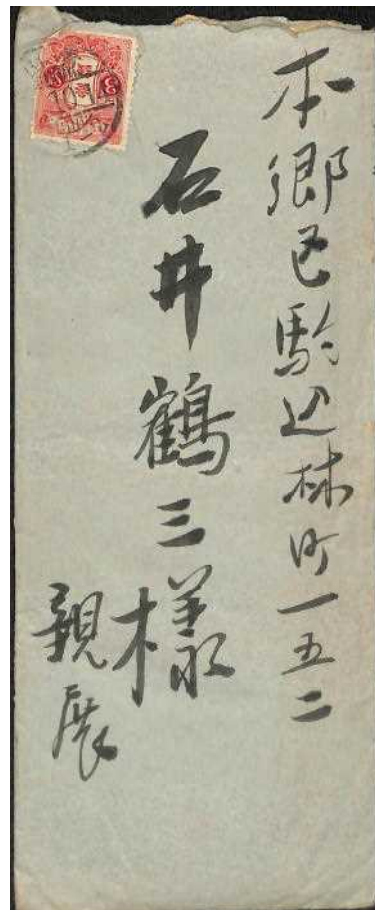 本郷区駒込林町一五二
石井鶴三様
親展